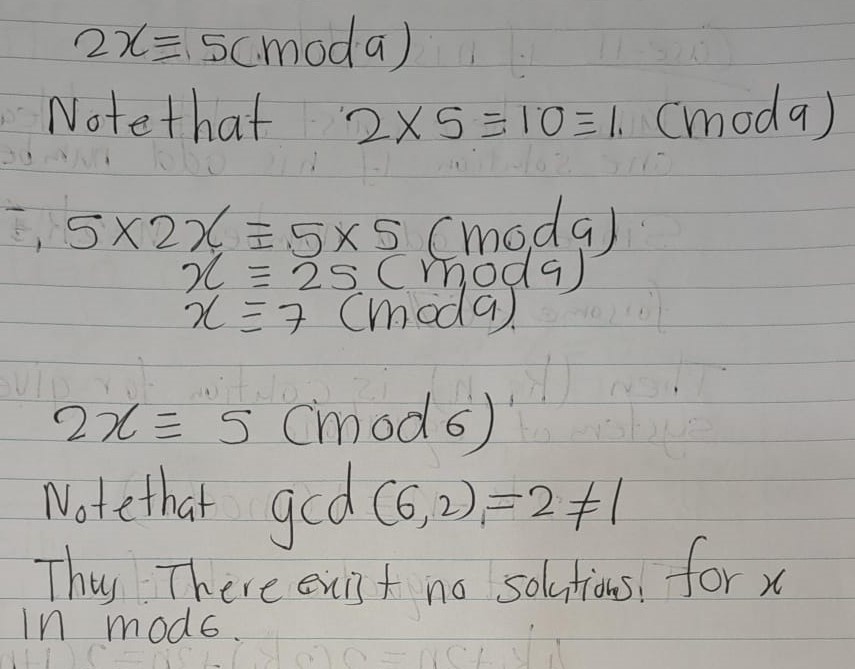 2x ≡ 5 (mod 9)
Note that 2 × 5 ≡ 10 ≡ 1. (mod 9)
5 × 2x ≡ 5 × 5 (mod 9)
x ≡ 25 (mod 9)
x ≡ 7 (mod 9).
2x ≡ 5 (mod 6)
Note that gcd (6,2) = 2 ≠ 1
Thus There exist no solutions. for x
in mod 6.